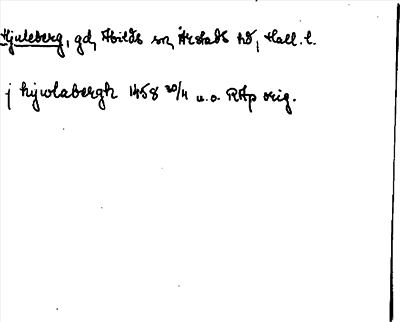 Hjuleberg, gd, Abilds sn, Årstads hd, Hall. l.
j hywlabergh 1458 30/4 u.o. RAp orig.